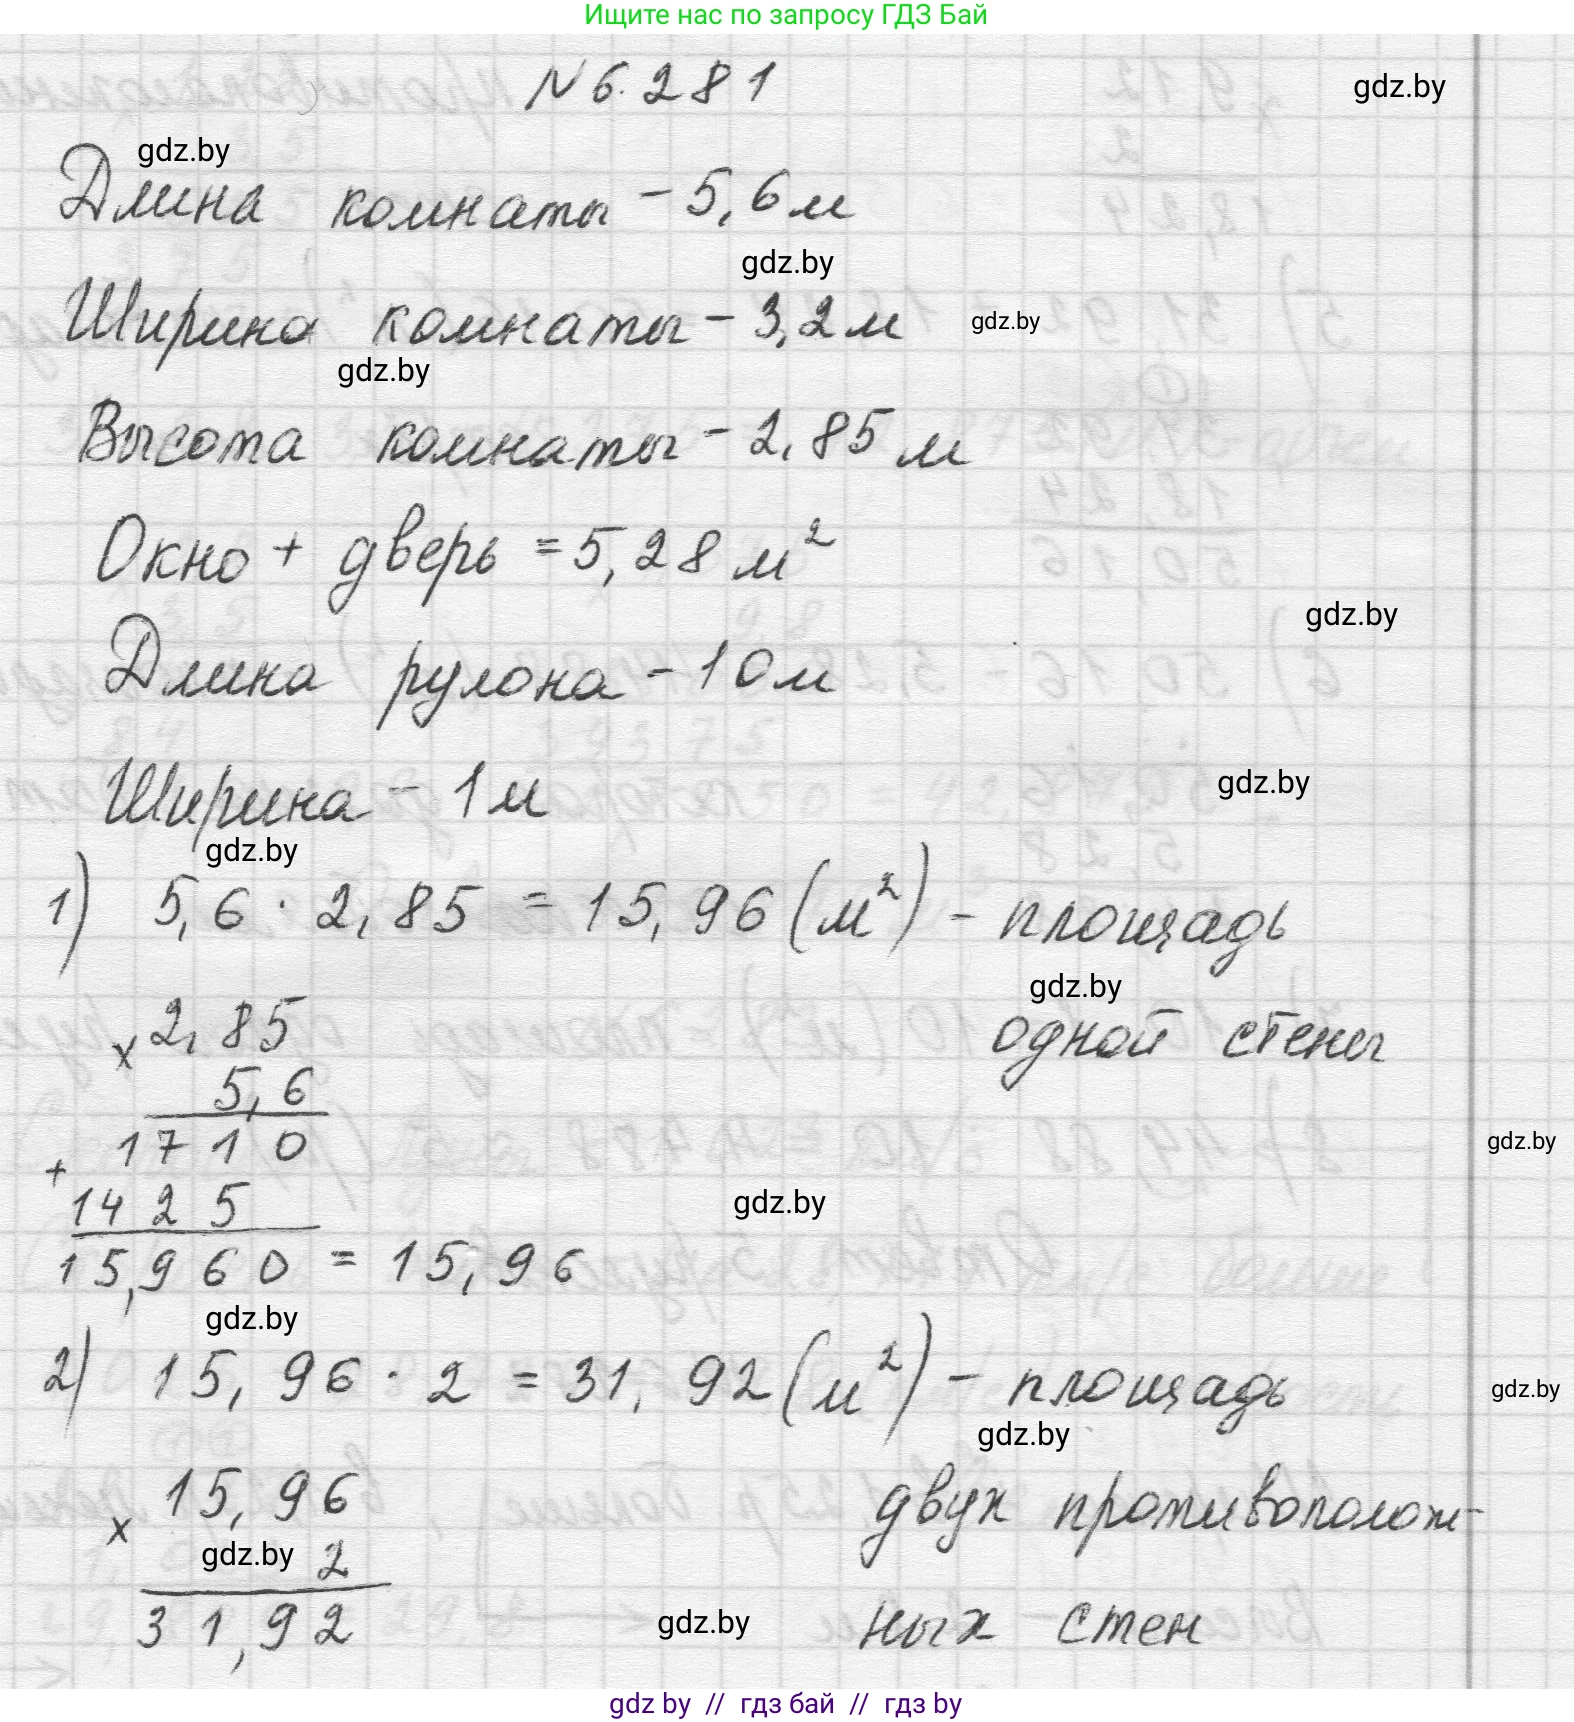 Ищите нас по запросу ГДЗ Бай
N 6.281
gdz.by
gdz.by
Длина комнаты - 5,6 м
gdz.by
Ширина комнаты - 3,2 м
gdz.by
gdz.by
Высота комнаты - 2,85 м
Окно + дверь = 5,28 м²
gdz.by
Длина рулона - 10 м
gdz.by
Ширина - 1 м
gdz.by
1) 5,6 · 2,85 = 15,96 (м²) - площадь
gdz.by
одной стены
x 2,85
5,6
1710
gdz.by
+
1425
gdz.by
15,960 = 15,96
gdz.by
2) 15,96 · 2 = 31,92 (м²) - площадь
gdz.by
gdz.by
двух противополож-
x 15,96
gdz.by
2
31,92
gdz.by
ных стен
gdz by // гдз бай // гдз by